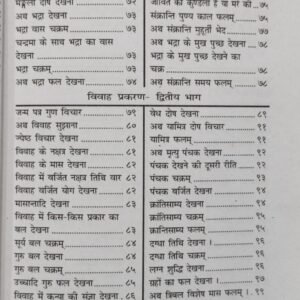 मङ्गली दोष देखना ........ ७२
अब भद्रा देखना ........ ७३
भद्रा वास चक्रम् ........ ७३
चन्द्रमा के साथ भद्रा का वास
देखना ........ ७३
भद्रा चक्रम् ........ ७३
अब भद्रा फल देखना ........ ७३
संक्रान्ति पुण्य काल फलम् ........ ७५
अब संक्रान्ति मुहूर्ती भेद ........ ७७
अब भद्रा के मुख पुच्छ देखना ........ ७८
भद्रा के मुख पुच्छ देखने का
चक्रम् ........ ७८
अब संक्रान्ति समय फलम् ........ ७८
विवाह प्रकरण- द्वितीय भाग
जन्म पत्र गुण विचार ........ ७९
अब विवाह सुझना ........ ८०
ज्येष्ठ विचार ........ ८१
विवाह के नक्षत्र देखना ........ ८१
विवाह के मास देखना ........ ८१
विवाह में वर्जित नक्षत्र तिथि वार ८१
विवाह वर्जित योग देखना ........ ८२
मासादि देखना ........ ८२
विवाह में किस-किस प्रकार का
बल देखना ........ ८३
सूर्य बल चक्रम् ........ ८४
गुरु बल देखना ........ ८४
गुरु बल चक्रम् ........ ८५
उच्चादि गुरु फल देखना ........ ८५
विवाह में कन्या की संज्ञा देखना ८६
वेध दोष देखना ........ ८९
अब यामित्र दोष विचार ........ ९१
यामित्र चक्रम् ........ ९१
अब मृत्यु पंचक देखना ........ ९२
पंचक देखने की दूसरी रीति ........ ९३
पंचक चक्रम् ........ ९३
पंचक वर्जित देखना ........ ९४
क्रांतिसाम्य देखना ........ ९४
क्रांतिसाम्य चक्रम् ........ ९४
क्रान्तिसाम्य फलम् ........ ९५
दग्धा तिथि देखना । ........ ९६
दग्धा तिथि चक्रम् ........ ९६
लग्न शुद्धि देखना ........ ९६
ग्रहों का फल देखना । ........ ९६
अब त्रिबल विशेष मास फलम् । ९८